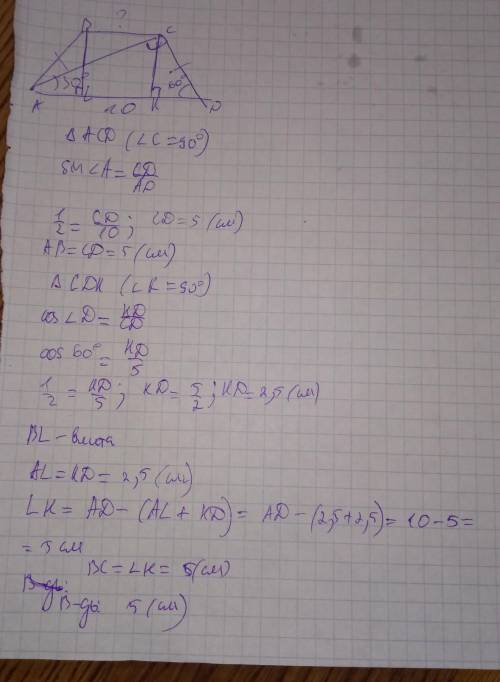 ?
B C
30° 60°
A L K D
10
Δ ACD (∠C = 90°)
sin∠A = CD/AD
1/2 = CD/10; CD = 5 (см)
AB = CD = 5 (см)
Δ CDK (∠K = 90°)
cos∠D = KD/CD
cos 60° = KD/5
1/2 = KD/5; KD = 5/2; KD = 2,5 (см)
BL - висота
AL = KD = 2,5 (см)
LK = AD - (AL + KD) = AD - (2,5 + 2,5) = 10 - 5 =
= 5 см
BC = LK = 5 (см)
В-дь:
В-дь: 5 (см)